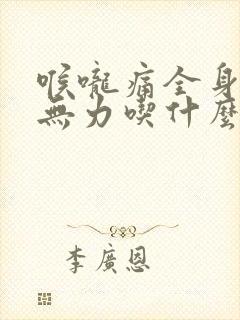 喉嚨痛全身
無力喫什麼
李廣恩